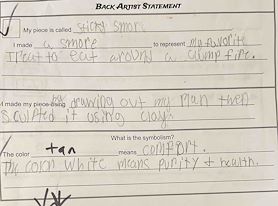 BACK ARTIST STATEMENT
My piece is called sticky smore
I made a smore to represent my favorite
Treat to eat around a camp fire.
I made my piece using by drawing out my plan then
Sculpted it using clay.
What is the symbolism?
The color tan means comfort.
The color white means purity + health.